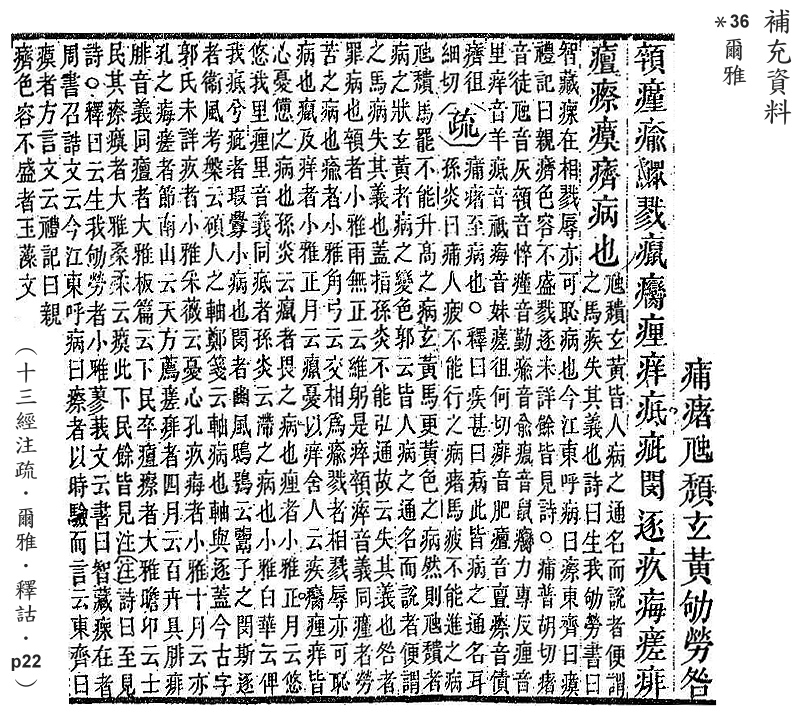 補充資料
*36 爾雅
痡瘏虺頹玄黃劬勞咎
顇瘽瘉鰥戮癙癵㾖痒疷疵閔逐疚痗瘥痱
癉瘵瘼癠病也 虺頹玄黃皆人病之通名而說者便謂
之馬疾失其義也詩曰生我劬勞書曰
智藏瘝在相戮辱亦可恥病也今江東呼病曰瘵東齊曰瘼
禮記曰親癠色容不盛戮逐未詳餘皆見詩○痡普胡切瘏
音徒虺音灰顇音悴瘽音勤瘉音俞癙音鼠癵力專反㾖音
里痒音羊疷音祇痗音妹瘥徂何切痱音肥癉音亶瘵音債
癠徂
細切
疏
痡瘏至病也○釋曰疾甚曰病此皆病之通名耳
孫炎曰痡人疲不能行之病瘏馬疲不能進之病
虺頹馬罷不能升高之病玄黃馬更黃色之病然則虺頹者
病之狀玄黃者病之變色郭云皆人病之通名而說者便謂
之馬病失其義也蓋指孫炎不能弘通故云失其義也咎者
罪病也顇者小雅雨無正云維躬是瘁顇瘁音義同瘽者勞
苦之病也瘉者小雅角弓云交相爲瘉戮者相戮辱亦可恥
病也癙及痒者小雅正月云癙憂以痒舍人云疾癙癵㾖痒皆
心憂憊之病也孫炎云癙者畏之病也㾖者小雅正月云悠
悠我里㾖里音義同疷者孫炎云滯之病也小雅白華云俾
我疷兮疵者瑕釁小病也閔者豳風鴟鴞云鬻子之閔斯逐
者衞風考槃云碩人之軸鄭箋云軸病也軸與逐蓋今古字
郭氏未詳疚者小雅采薇云憂心孔疚痗者小雅十月云亦
孔之痗瘥者節南山云天方薦瘥痱者四月云百卉具腓痱
腓音義同癉者大雅板篇云下民卒癉瘵者大雅瞻卬云士
民其瘵瘼者大雅桑柔云瘼此下民餘皆見注注詩曰至見
詩○釋曰云生我劬勞者小雅蓼莪文云書曰智藏瘝在者
周書召誥文云今江東呼病曰瘵者以時驗而言云東齊曰
瘼者方言文云禮記曰親
癠色容不盛者玉藻文
（十三經注疏．爾雅．釋詁．p22）